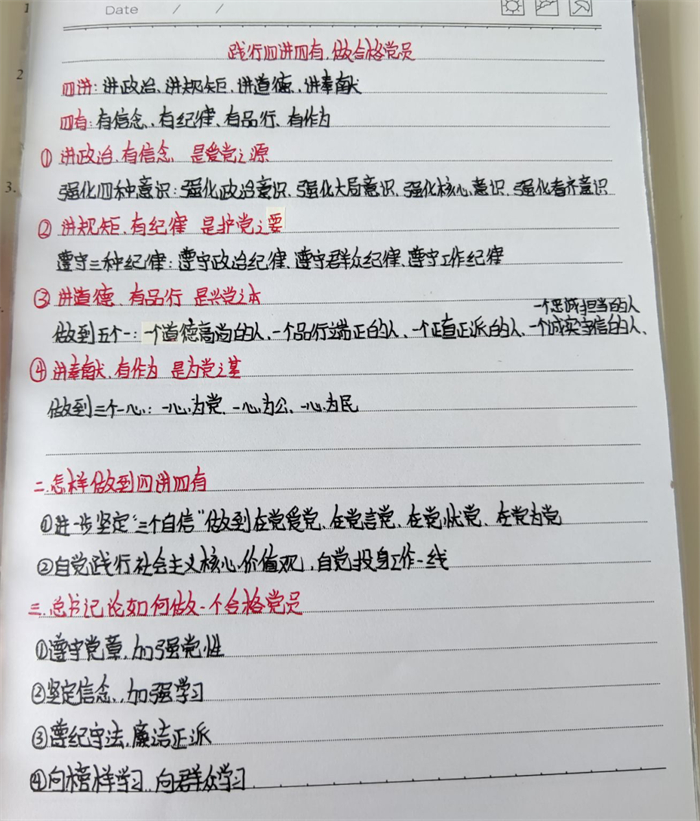 1
Date / /
践行四讲四有,做合格党员
2
四讲:讲政治、讲规矩、讲道德、讲奉献
四有:有信念、有纪律、有品行、有作为
①讲政治,有信念 是爱党之源
3.
强化四种意识:强化政治意识、强化大局意识、强化核心意识、强化看齐意识
②讲规矩,有纪律 是护党之要
遵守三种纪律:遵守政治纪律、遵守群众纪律、遵守工作纪律
③讲道德、有品行 是兴党之本
一个忠诚担当的人
做到五个一:一个道德高尚的人、一个品行端正的人、一个正直正派的人、一个诚实守信的人、
④讲奉献,有作为 是为党之基
做到三个一心:一心为党、一心为公、一心为民
二.怎样做到四讲四有
①进一步坚定“三个自信”做到在党爱党、在党言党、在党忧党、在党为党
②自觉践行社会主义核心价值观,自觉投身工作一线
三.总书记论如何做一个合格党员
①遵守党章,加强党性
②坚定信念,加强学习
③遵纪守法,廉洁正派
④向榜样学习,向群众学习